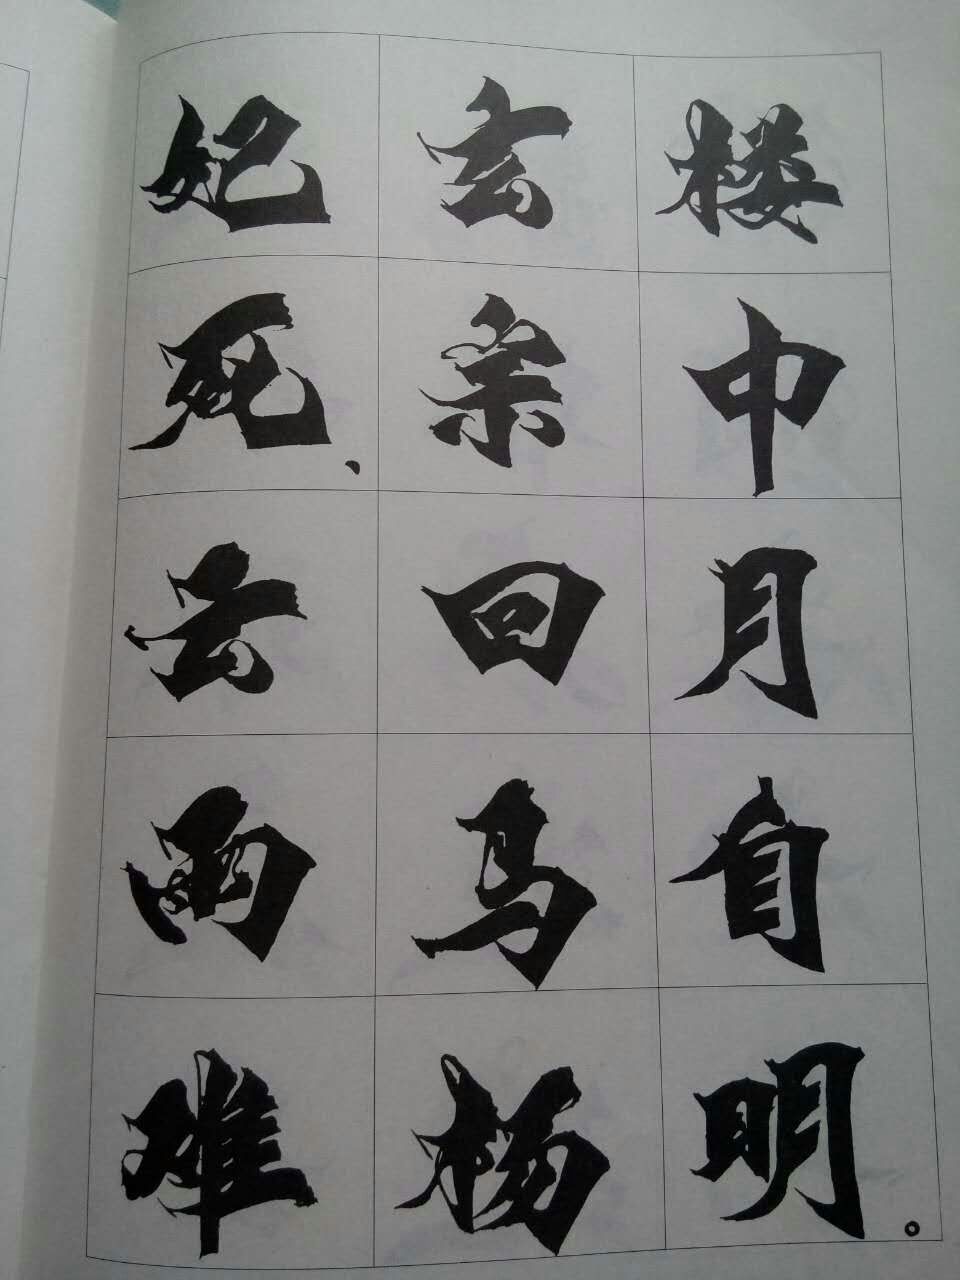 楼中月自明。
玄宗回马杨
妃死、云雨难